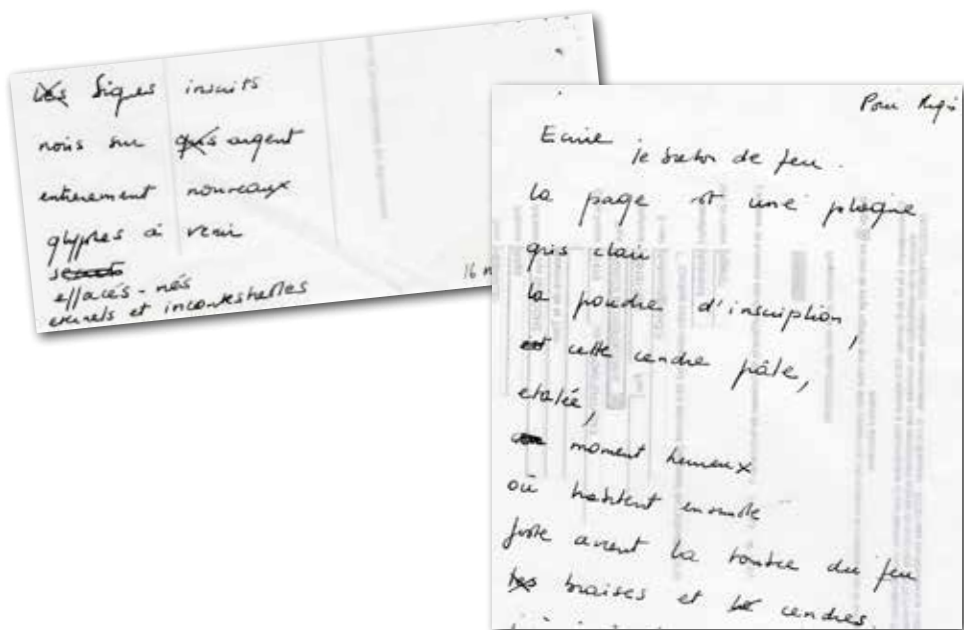 Signes inscrits
noirs sur argent
entièrement nouveaux
glyphes à venir
effacés-nés
éternels et incontestables
16
Pour Régis
Ecrire
le de feu.
la page est une plaque
gris clair
la poudre d'inscription,
cette cendre pâle,
étalée,
moment heureux
où
juste avant la du feu
braises et cendres